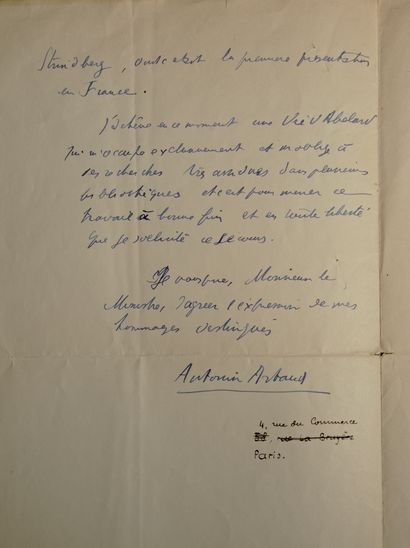 Strindberg, dont c'était la première présentation
en France.
J'achève en ce moment une Vie d'Abelard
qui m'occupe exclusivement et m'oblige à
des recherches très ardues dans plusieurs
bibliothèques et c'est pour mener ce
travail à bonne fin et en toute liberté
que je sollicite ce secours.
Je vous prie, Monsieur le
Ministre, d'agréer l'expression de mes
hommages distingués
Antonin Artaud
4, rue du Commerce
58, rue La Bruyère
Paris.